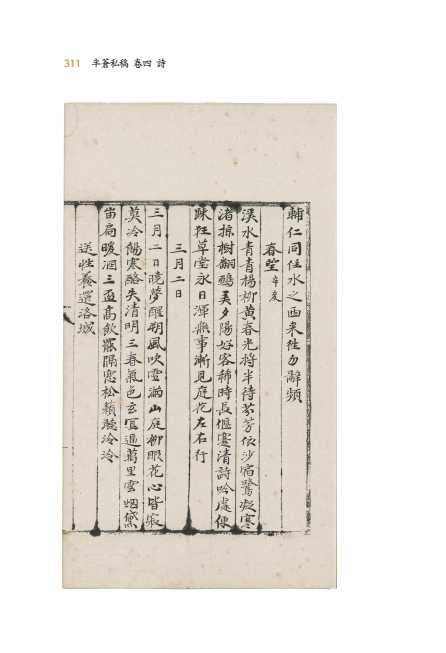 311 半蒼私稿 卷四 詩
輔仁同住水之西來往勿辭頻
春望 辛亥
溪水青青楊柳黃春光將半待芬芳依沙宿鷺凝寒
渚掠樹翻鴉美夕陽好客稀時長偃蹇清詩吟處便
踈狂草堂永日渾無事漸見庭花左右行
三月二日
三月二日曉夢醒朔風吹雪滿山庭柳眼花心皆寂
莫冷餳寒酪失清明三春氣色玄冥過萬里雲烟黛
巖扃暖酒三盃高飲罷隔窓松籟聽泠泠
送性養還洛城